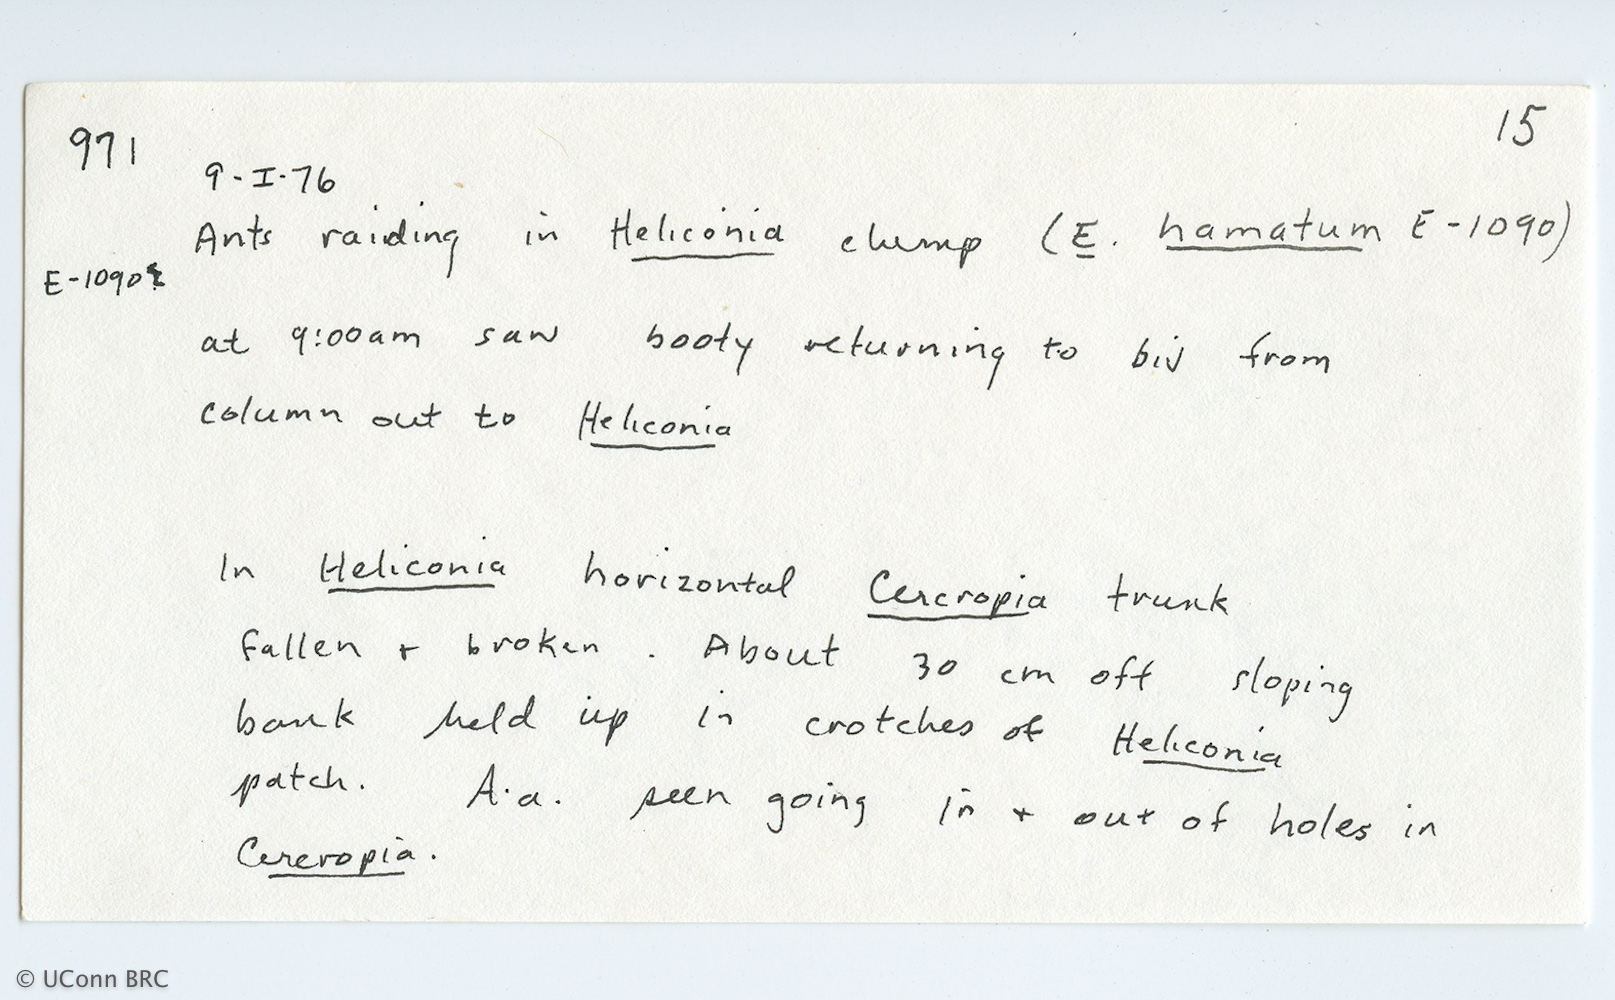 971
15
9-I-76
Ants raiding in Heliconia clump (E. hamatum E-1090)
E-1090
at 9:00am saw booty returning to biv from
column out to Heliconia
In Heliconia horizontal Cercropia trunk
fallen + broken. About 30 cm off sloping
bank held up in crotches of Heliconia
patch. A.a. seen going in + out of holes in
Cercropia.
© UConn BRC